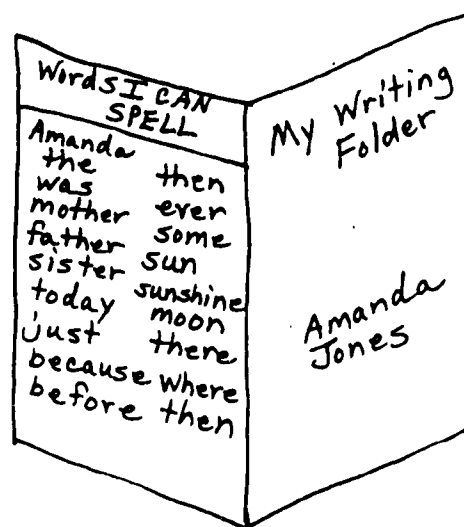 Words I CAN
SPELL
Amanda
the
was
mother
father
sister
today
just
because
before
then
ever
some
sun
sunshine
moon
there
where
then
My Writing
Folder
Amanda
Jones